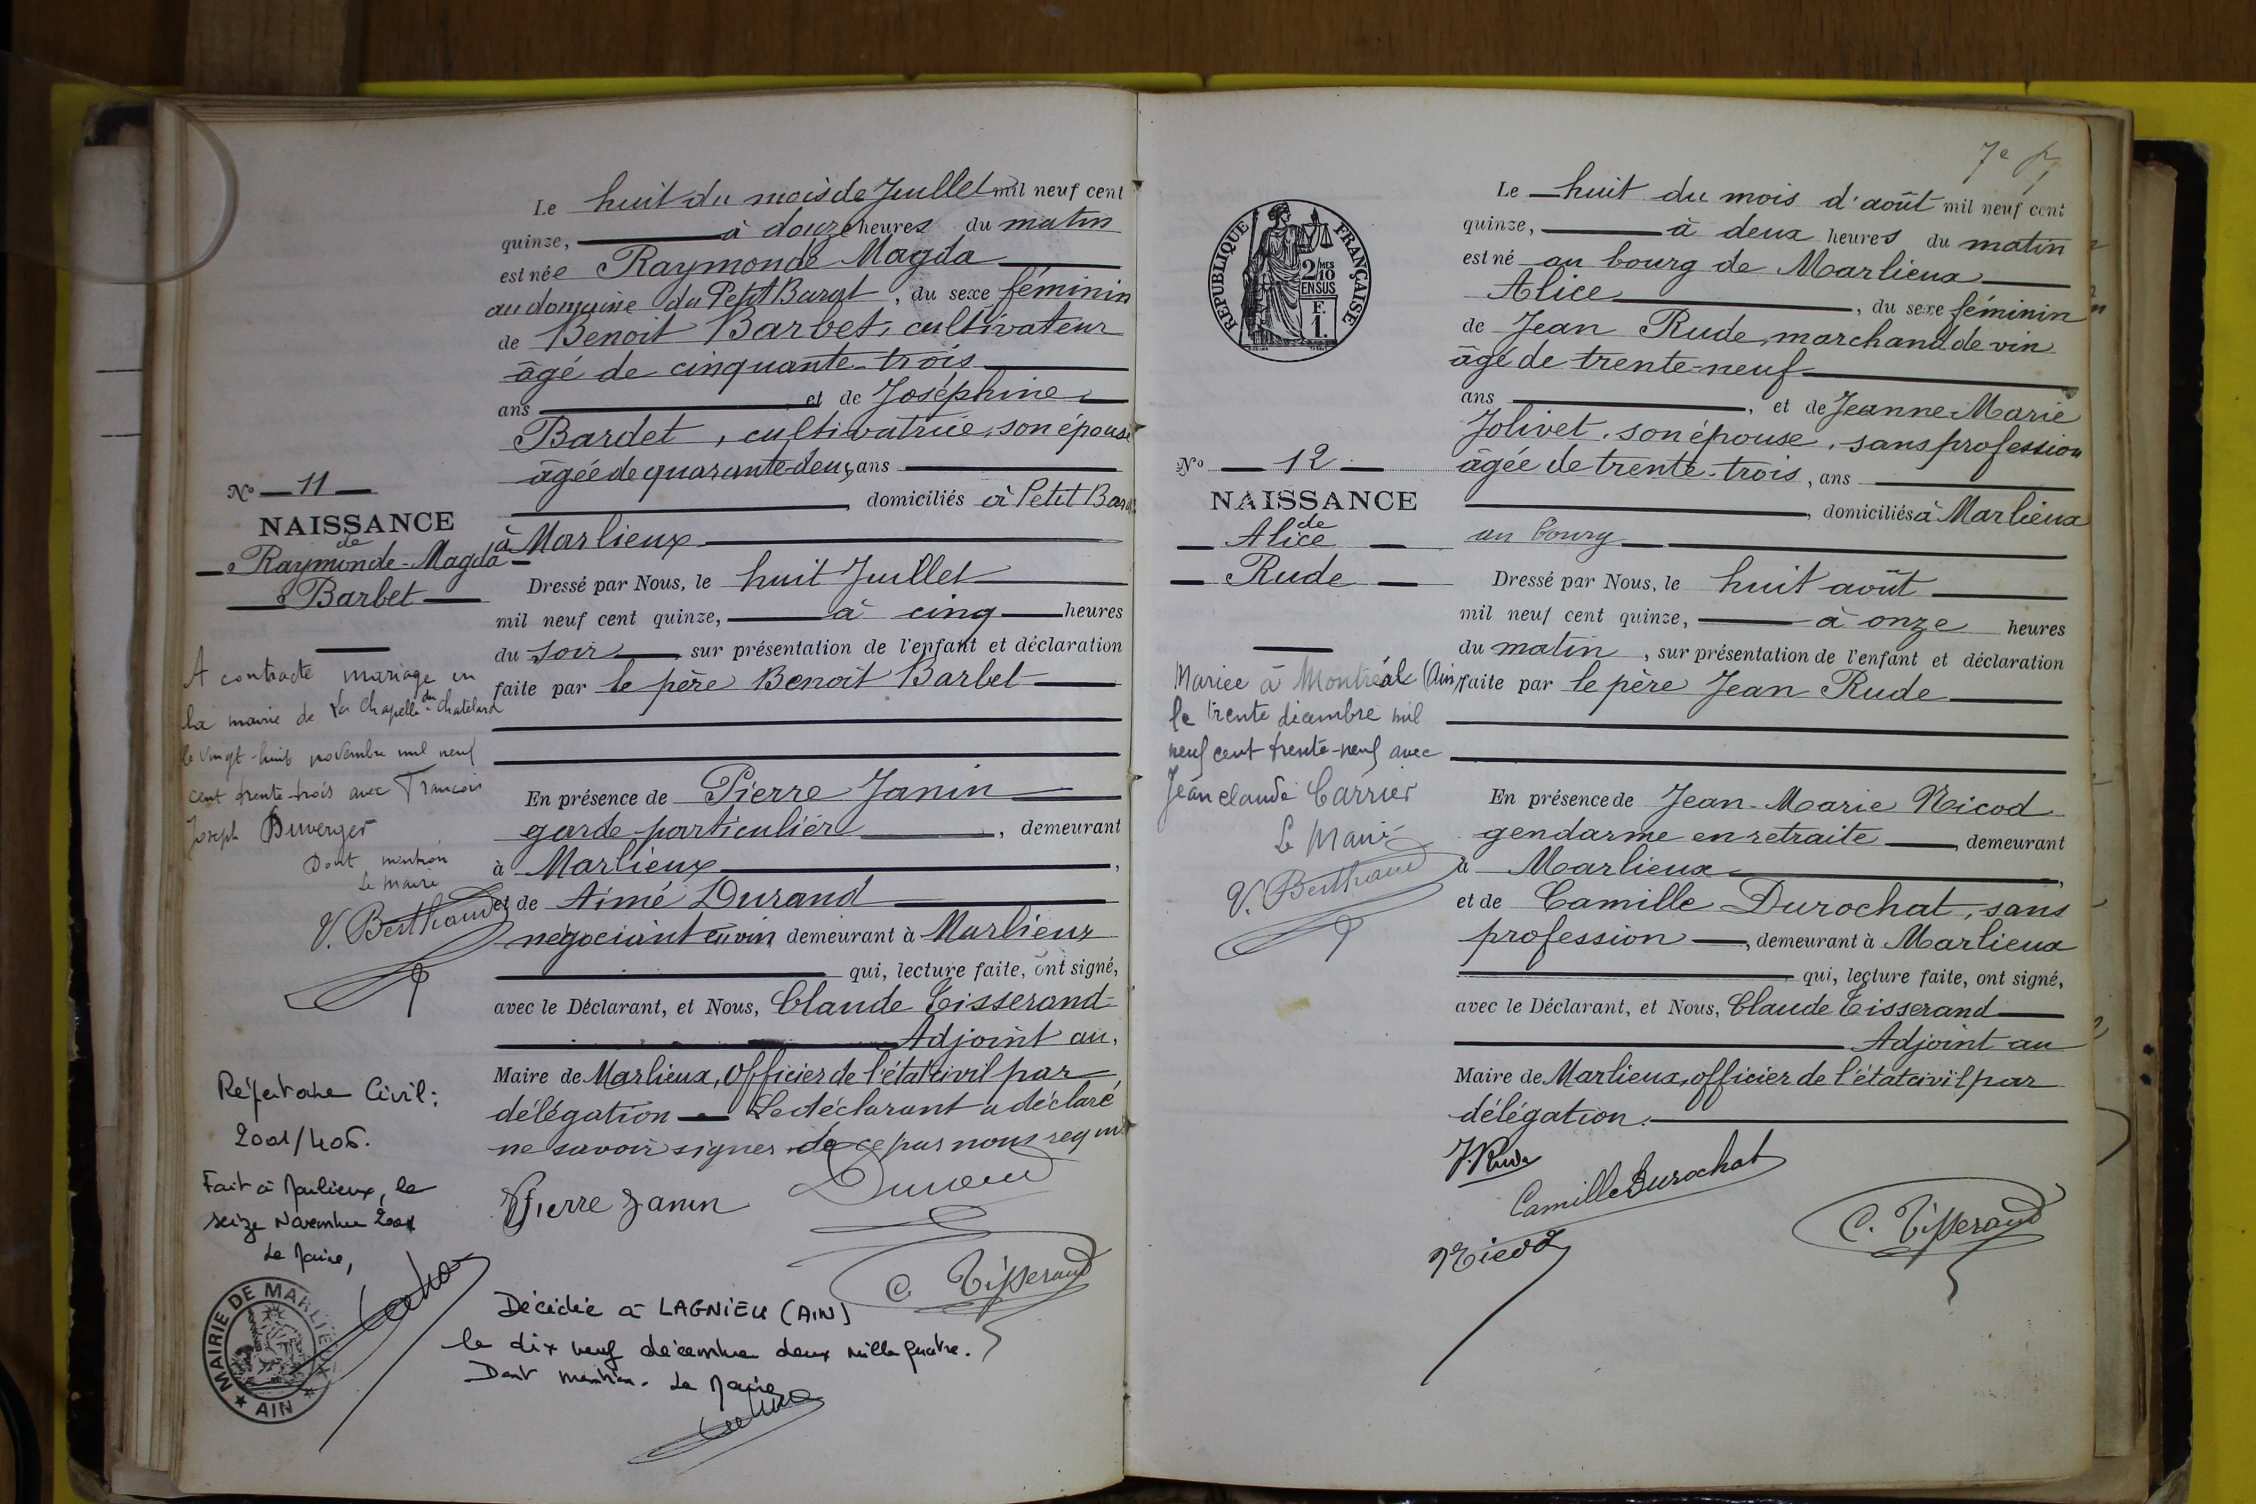 Le huit du mois de Juillet mil neuf cent
quinze, à douze heures du matin
est née Raymonde Magda
au domaine du Petit Barat, du sexe féminin
de Benoit Barbet, cultivateur
âgé de cinquante-trois
ans et de Joséphine
Bardet, cultivatrice, son épouse
âgée de quarante-deux, ans
domiciliés à Petit
à Marlieux
Dressé par Nous, le huit Juillet
mil neuf cent quinze, à cinq heures
du soir, sur présentation de l'enfant et déclaration
faite par le père Benoit Barbet
En présence de Pierre Janin
garde particulier, demeurant
à Marlieux,
et de Aimé Durand
négociant en vin demeurant à Marlieux
qui, lecture faite, ont signé,
avec le Déclarant, et Nous, Claude Tisserand
Adjoint au
Maire de Marlieux, Officier de l'état civil par
délégation Le déclarant a déclaré
ne savoir signer de ce par nous requis
Pierre Janin
Durand
C. Tisserand
No 11
NAISSANCE
de
Raymonde-Magda
Barbet
A contracté mariage en
la mairie de La Chapelle du Chatelard
le vingt-huit novembre mil neuf
cent trente-trois avec François
Joseph Duverger
Dont mention
Le Maire
V. Berthaud
Répertoire Civil:
2001/406.
Fait à Marlieux, le
seize Novembre 2001
Le Maire,
MAIRIE DE MARLIEUX
AIN
Décédée à LAGNIEU (AIN)
le dix neuf décembre deux mille quatre.
Dont mention. Le Maire
7e
RÉPUBLIQUE FRANÇAISE
2/10 MES
EN SUS
F.
1.
Le huit du mois d'août mil neuf cent
quinze, à deux heures du matin
est né au bourg de Marlieux
Alice, du sexe féminin
de Jean Rude, marchand de vin
âgé de trente-neuf
ans, et de Jeanne Marie
Jolivet, son épouse, sans profession
âgée de trente-trois, ans
domiciliés à Marlieux
au bourg
Dressé par Nous, le huit août
mil neuf cent quinze, à onze heures
du matin, sur présentation de l'enfant et déclaration
faite par le père Jean Rude
En présence de Jean-Marie Nicod
gendarme en retraite, demeurant
à Marlieux,
et de Camille Durochat, sans
profession, demeurant à Marlieux
qui, lecture faite, ont signé,
avec le Déclarant, et Nous, Claude Tisserand
Adjoint au
Maire de Marlieux, officier de l'état civil par
délégation.
J. Rude
Camille Durochat
Nicod
C. Tisserand
No 12
NAISSANCE
de
Alice
Rude
Mariée à Montréal (Ain)
le trente décembre mil
neuf cent trente-neuf avec
Jean Claude Carrier
Le Maire
V. Berthaud